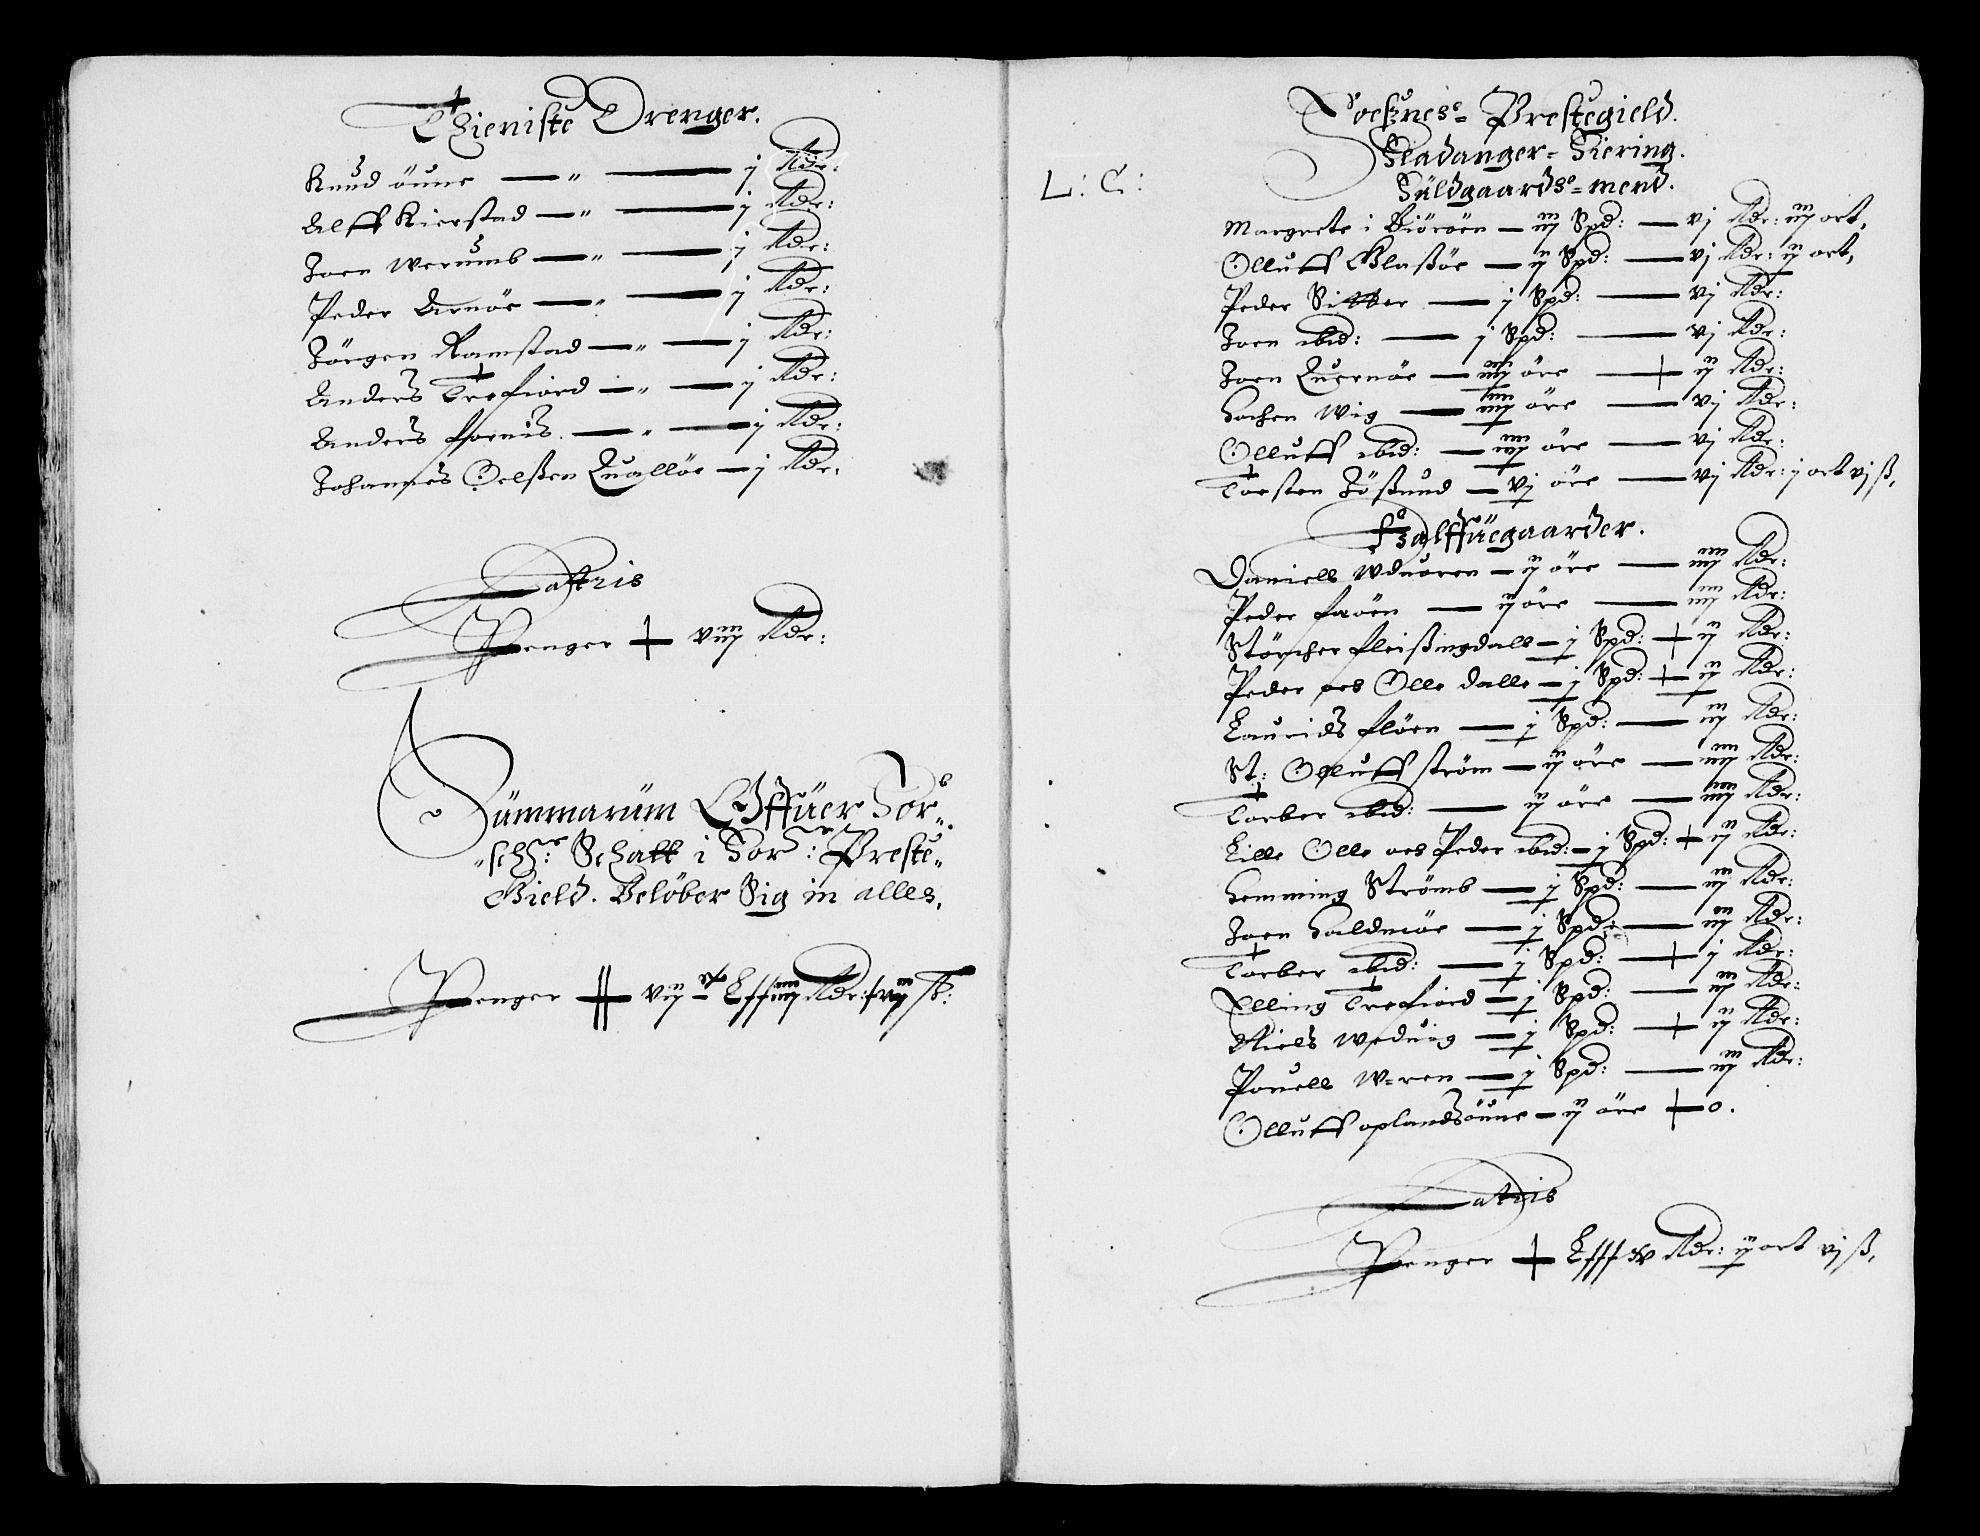 Thieniste Drenger.
Knud öüne — " — j Rdr:
Alff Kierstad — " — j Rdr:
Joen Werumb — " — j Rdr:
Peder Arnöe — " — j Rdr:
Jörgen Ramstad — " — j Rdr:
Anders Trefiord — " — j Rdr:
Anders foenis. — " — j Rdr:
Johannes Oelßen Quallöe — j Rdr:
Latris
Penger — viij Rdr:
Summarüm Offüer
Schatt i Preste
Gield. Belöber Sig in alles,
Penger
L: C:
Soeßnes= Prestegield.
Stadanger= Tiering.
Füldgaards=mend.
Margrete i Biöröen — iij Spd: — vj Rdr: iij ort,
Olluff Glaßöe — ij Spd: — vj Rdr: ij ort,
Peder Sitter — j Spd: — vj Rdr:
Joen ibid: — j Spd: — vj Rdr:
Joen Quernöe — iiij öre — ij Rdr:
Hachen Wig — iiij öre — vj Rdr:
Olluff ibid: — iiij öre — vj Rdr:
Torsten Jößund — vj öre — vj Rdr: j ort vj ß,
Halffüegaarder.
Daniell Wduoren — ij öre — iiij Rdr:
Peder faöen — ij öre — iiij Rdr:
Störcher fleißingdall — j Spd: — ij Rdr:
Peder oes Olle dalle — j Spd: — ij Rdr:
Laurids flöen — j Spd: — iij Rdr:
St: Olluff ström — ij öre — iiij Rdr:
Torber ibid: — ij öre — iiij Rdr:
Lille Olle oes Peder ibid: — j Spd: — ij Rdr:
Hemming Strömb — j Spd: — iij Rdr:
Joen Haldmöe — j Spd: — iij Rdr:
Torber ibid: — j Spd: — j Rdr:
Elling Trefiord — j Spd: — iij Rdr:
Niels Weduig — j Spd: — ij Rdr:
Pouell W=ren — j Spd: — iij Rdr:
Olluff oplandsöüne — ij öre — 0.
Latris
Penger — Rdr: ij ort vj ß,